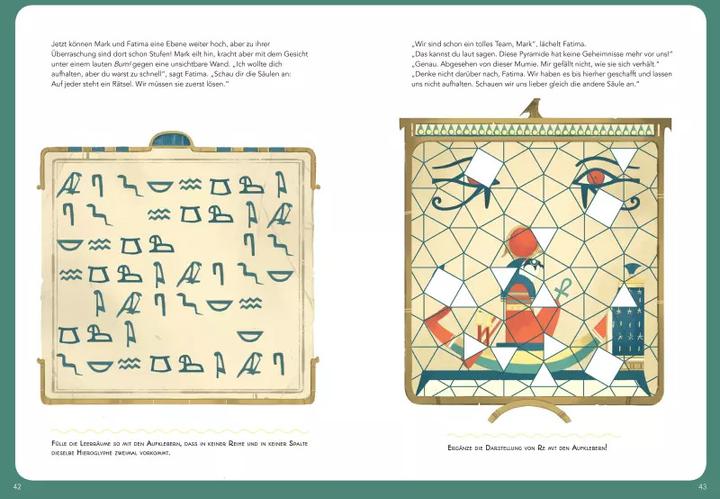 Jetzt können Mark und Fatima eine Ebene weiter hoch, aber zu ihrer
Überraschung sind dort schon Stufen! Mark eilt hin, kracht aber mit dem Gesicht
unter einem lauten Bum! gegen eine unsichtbare Wand. „Ich wollte dich
aufhalten, aber du warst zu schnell“, sagt Fatima. „Schau dir die Säulen an:
Auf jeder steht ein Rätsel. Wir müssen sie zuerst lösen.“
Fülle die Leerräume so mit den Aufklebern, dass in keiner Reihe und in keiner Spalte
dieselbe Hieroglyphe zweimal vorkommt.
42
„Wir sind schon ein tolles Team, Mark“, lächelt Fatima.
„Das kannst du laut sagen. Diese Pyramide hat keine Geheimnisse mehr vor uns!“
„Genau. Abgesehen von dieser Mumie. Mir gefällt nicht, wie sie sich verhält.“
„Denke nicht darüber nach, Fatima. Wir haben es bis hierher geschafft und lassen
uns nicht aufhalten. Schauen wir uns lieber gleich die andere Säule an.“
Ergänze die Darstellung von Re mit den Aufklebern!
43